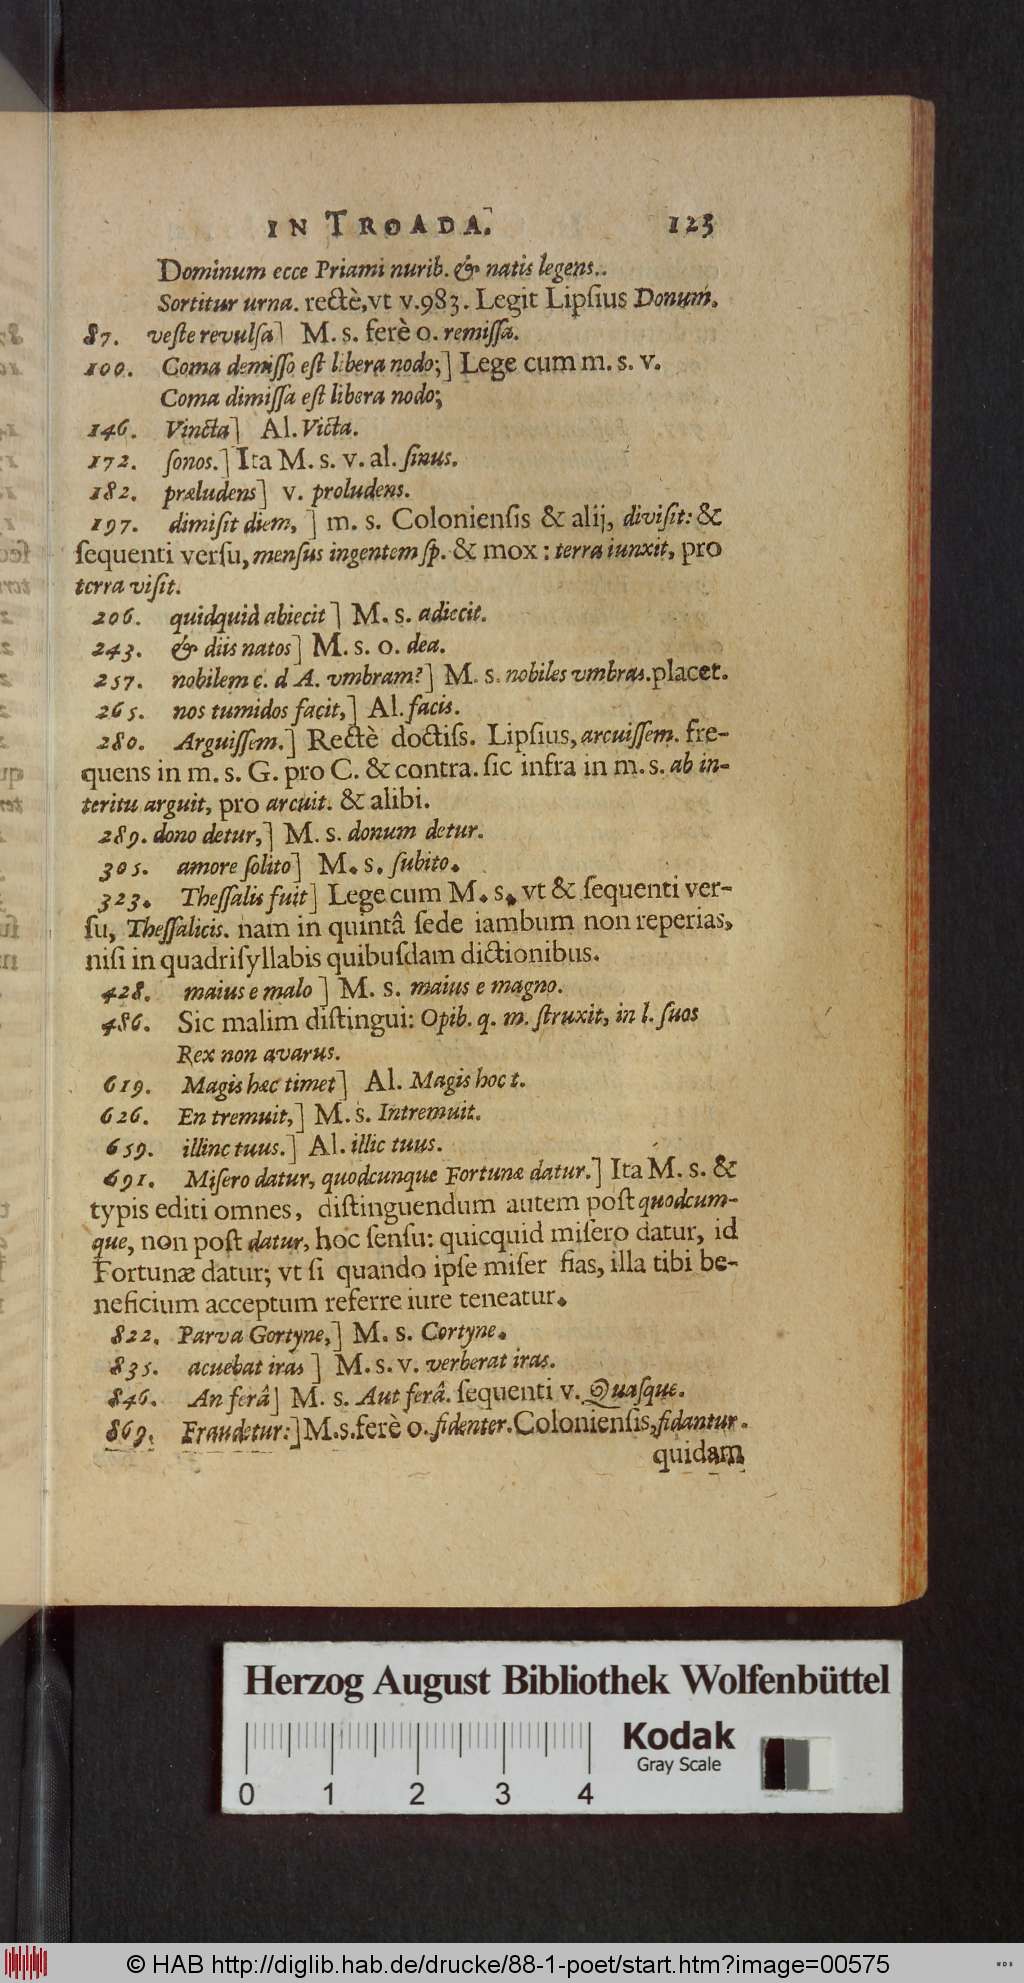 IN TROADA. 123
Dominum ecce Priami nurib. & natis legens..
Sortitur urna. rectè, vt v. 983. Legit Lipſius Donum.
87. veſte revulſa] M. s. ferè o. remiſſa.
100. Coma demiſſo eſt libera nodo;] Lege cum m. s. v.
Coma dimiſſa eſt libera nodo;
146. Vincta] Al. Victa.
172. ſonos.] Ita M. s. v. al. ſinus.
182. præludens] v. proludens.
197. dimiſit diem, ] m. s. Colonienſis & alij, diviſit: &
ſequenti verſu, menſus ingentem ſp. & mox : terra iunxit, pro
terra viſit.
206. quidquid abiecit ] M. s. adiecit.
243. & diis natos] M. s. o. dea.
257. nobilem c. d A. vmbram?] M. s. nobiles vmbras. placet.
265. nos tumidos facit,] Al. facis.
280. Arguiſſem.] Rectè doctiſs. Lipſius, arcuiſſem. fre-
quens in m. s. G. pro C. & contra. ſic infra in m. s. ab in-
teritu arguit, pro arcuit. & alibi.
289. dono detur,] M. s. donum detur.
305. amore ſolito] M. s. ſubito.
323. Theſſalis fuit] Lege cum M. s. vt & ſequenti ver-
ſu, Theſſalicis. nam in quintâ ſede iambum non reperias,
niſi in quadriſyllabis quibuſdam dictionibus.
428. maius e malo ] M. s. maius e magno.
486. Sic malim diſtingui: Opib. q. m. ſtruxit, in l. ſuos
Rex non avarus.
619. Magis hæc timet] Al. Magis hoc t.
626. En tremuit,] M. s. Intremuit.
659. illinc tuus.] Al. illic tuus.
691. Miſero datur, quodcunque Fortunæ datur.] Ita M. s. &
typis editi omnes, diſtinguendum autem poſt quodcum-
que, non poſt datur, hoc ſenſu: quicquid miſero datur, id
Fortunæ datur; vt ſi quando ipſe miſer fias, illa tibi be-
neficium acceptum referre iure teneatur.
822. Parva Gortyne,] M. s. Cortyne.
835. acuebat iras ] M. s. v. verberat iras.
846. An ferâ] M. s. Aut ferâ. ſequenti v. Quaſque.
869. Fraudetur:] M. s. ferè o. fidenter. Colonienſis, fidantur.
quidam
Herzog August Bibliothek Wolfenbüttel
Kodak
Gray Scale
0 1 2 3 4
© HAB http://diglib.hab.de/drucke/88-1-poet/start.htm?image=00575